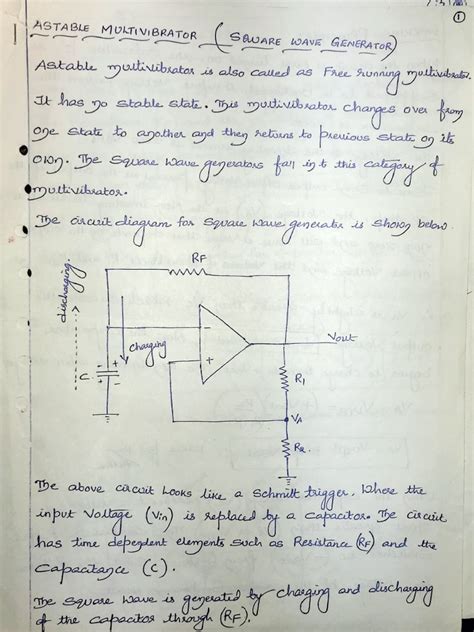 ①
ASTABLE MULTIVIBRATOR (SQUARE WAVE GENERATOR)
Astable multivibrator is also called as Free running multivibrator.
It has no stable state. This multivibrator changes over from
one state to another and then returns to previous state on its
own. The square wave generators fall into this category of
multivibrator.
The circuit diagram for square wave generator is shown below.
RF
discharging.
charging
C
- +
- +
−
+
Vout
R1
VA
R2.
The above circuit looks like a schmitt trigger, where the
input voltage (Vin) is replaced by a capacitor. The circuit
has time dependent elements such as Resistance (RF) and the
capacitance (C).
The square wave is generated by charging and discharging
of the capacitor through (RF).